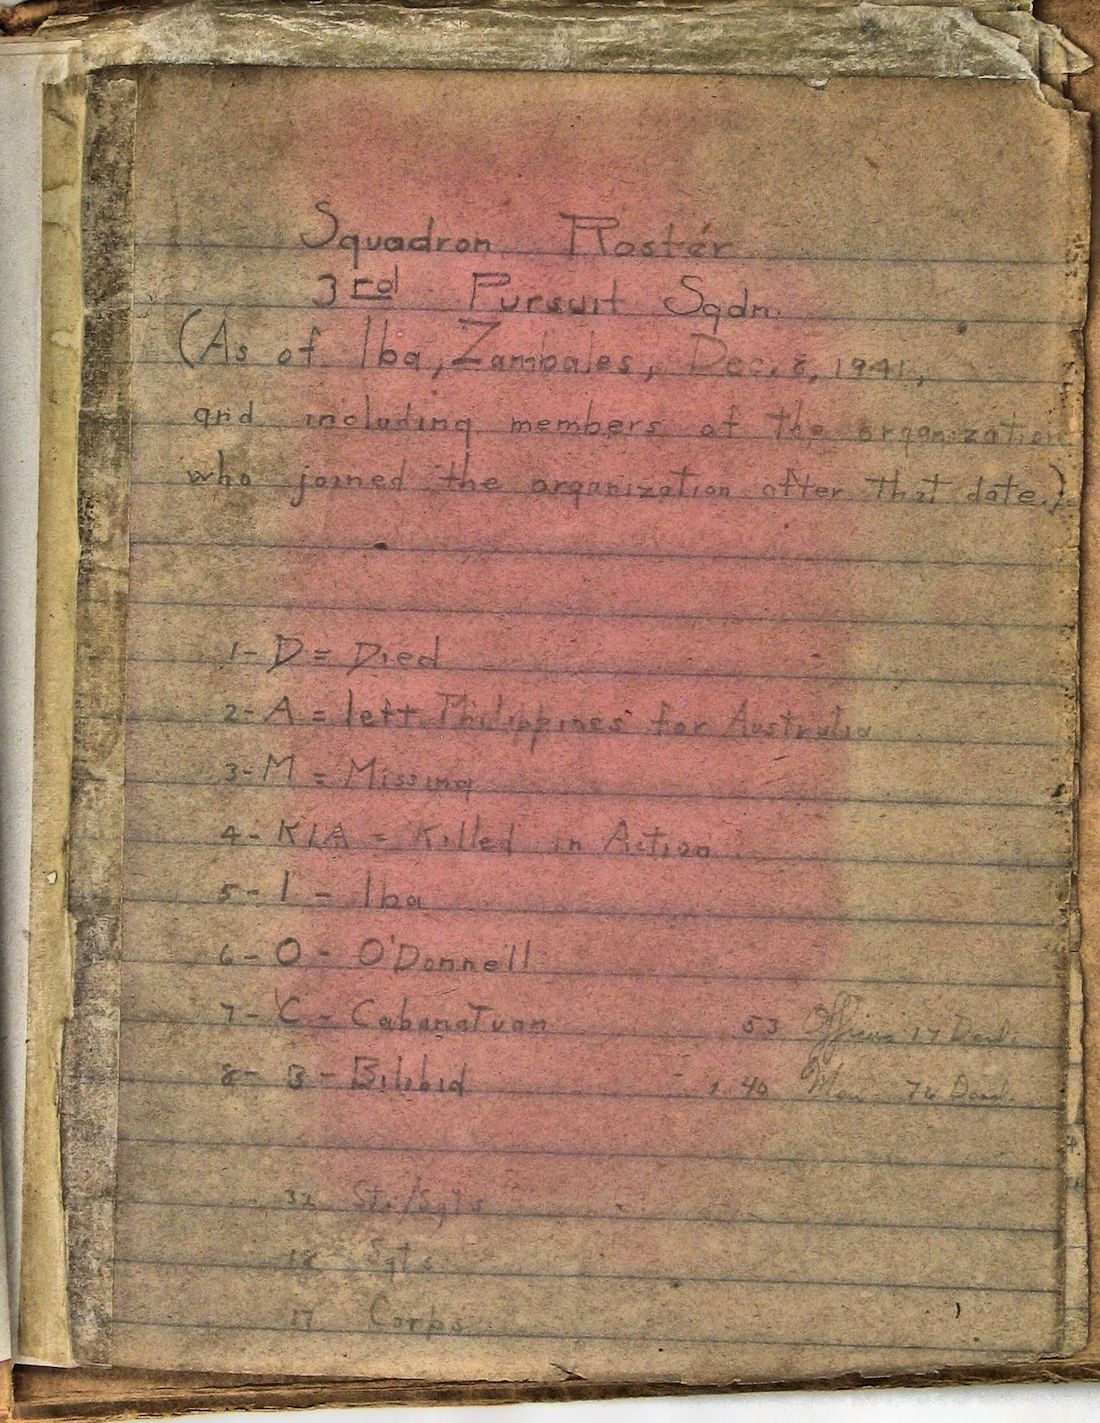 Squadron Roster
3rd Pursuit Sqdn.
(As of Iba, Zambales, Dec. 8, 1941,
and including members of the organization
who joined the organization after that date.)
1- D = Died
2- A = left Philippines for Australia
3- M = Missing
4- KIA = Killed in Action
5- I - Iba
6- O - O'Donnell
7- C - Cabanatuan 53 Officers 17 Dead.
8- B - Bilibid 40 Men 76 Dead.
32 St./Sgts
18 Sgts
17 Corps